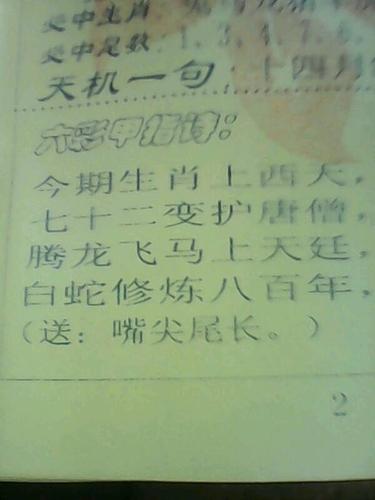 必中生肖:
必中尾数:1、3、4、7、8、
天机一句:十四月
六彩甲指诗:
今期生肖上西天,
七十二变护唐僧,
腾龙飞马上天廷,
白蛇修炼八百年,
(送:嘴尖尾长。)
2